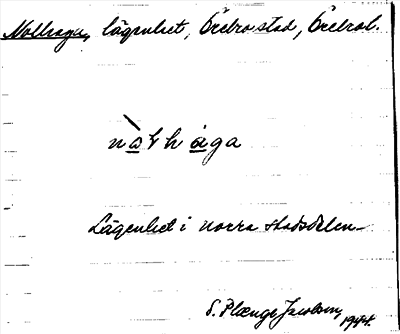 Nolhaga, lägenhet, Örebro stad, Örebro l.
nòlhàga
Lägenhet i norra stadsdelen
S. Plænge Jacobson, 1944.